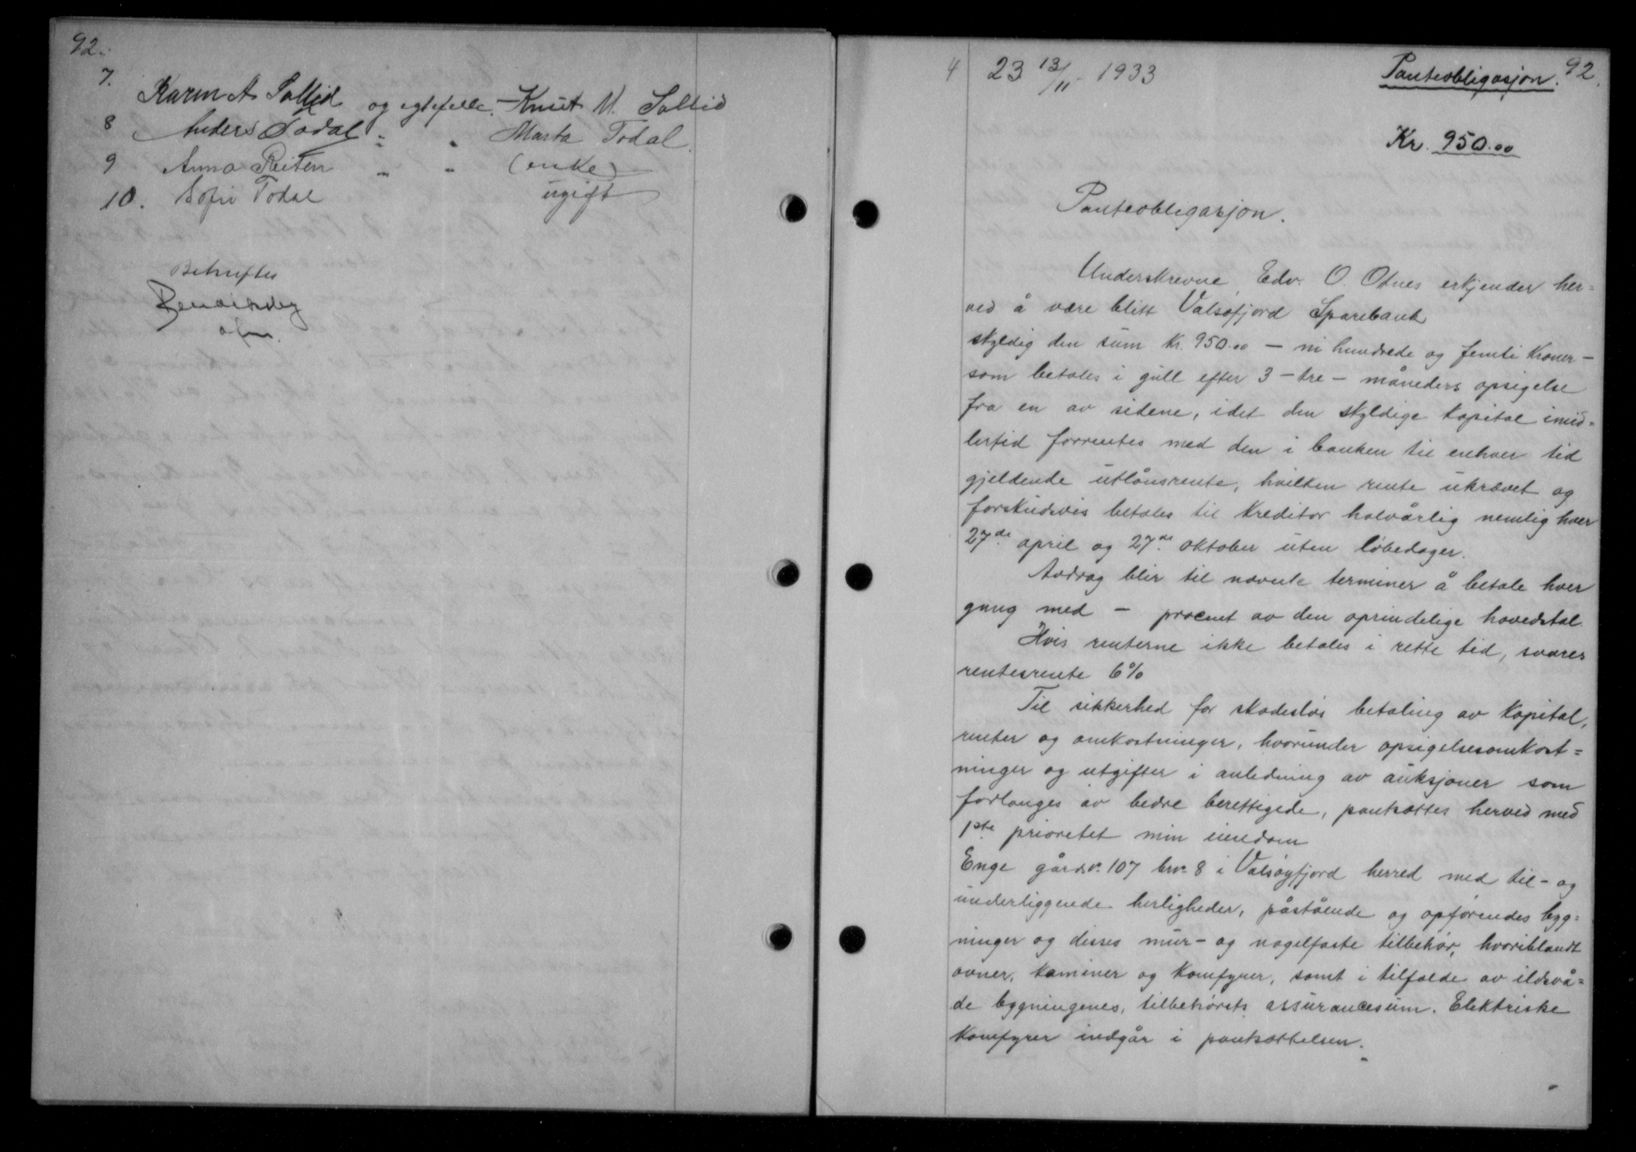 92.
7. Karen A. Sollid og egtefelle Knut M. Sollid
8 Anders Todal " " Marta Todal.
9 Anna Reiten " " (enke)
10. Sofie Todal ugift
Bekreftes
ofm.
4 23 13/11 - 1933 Panteobligasjon. 92.
Kr. 950.00
Panteobligasjon.
Underskrevne, Edv. O. Odnes erkjender her=
ved å være blitt Valsøfjord Sparebank
skyldig den sum kr. 950.00 — ni hundrede og femti kroner —
som betales i gull efter 3 - tre - måneders opsigelse
fra en av sidene, idet den skyldige kapital imid=
lertid forrentes med den i banken til enhver tid
gjeldende utlånsrente, hvilken rente ukrævet og
forskudsvis betales til kreditor halvårlig nemlig hver
27de april og 27de oktober uten løbedager.
Avdrag blir til nævnte terminer å betale hver
gang med — procent av den oprindelige hovedstol
Hvis renterne ikke betales i rette tid, svares
rentesrente 6%
Til sikkerhed for skadesløs betaling av kapital,
renter og omkostninger, hvorunder opsigelsesomkost=
ninger og utgifter i anledning av auksjoner som
forlanges av bedre berettigede, pantsættes herved med
1ste prioretet min eiendom
Enge gårdsnr. 107 brnr. 8 i Valsøyfjord herred med til- og
underliggende herligheder, påstående og opførendes byg=
ninger og disses mur- og nagelfaste tilbehør, hvoriblandt
ovner, kaminer og komfyrer, samt i tilfælde av ildsvå=
de bygningenes, tilbehørets assurancesum. Elektriske
komfyrer indgår i pantsættelsen.